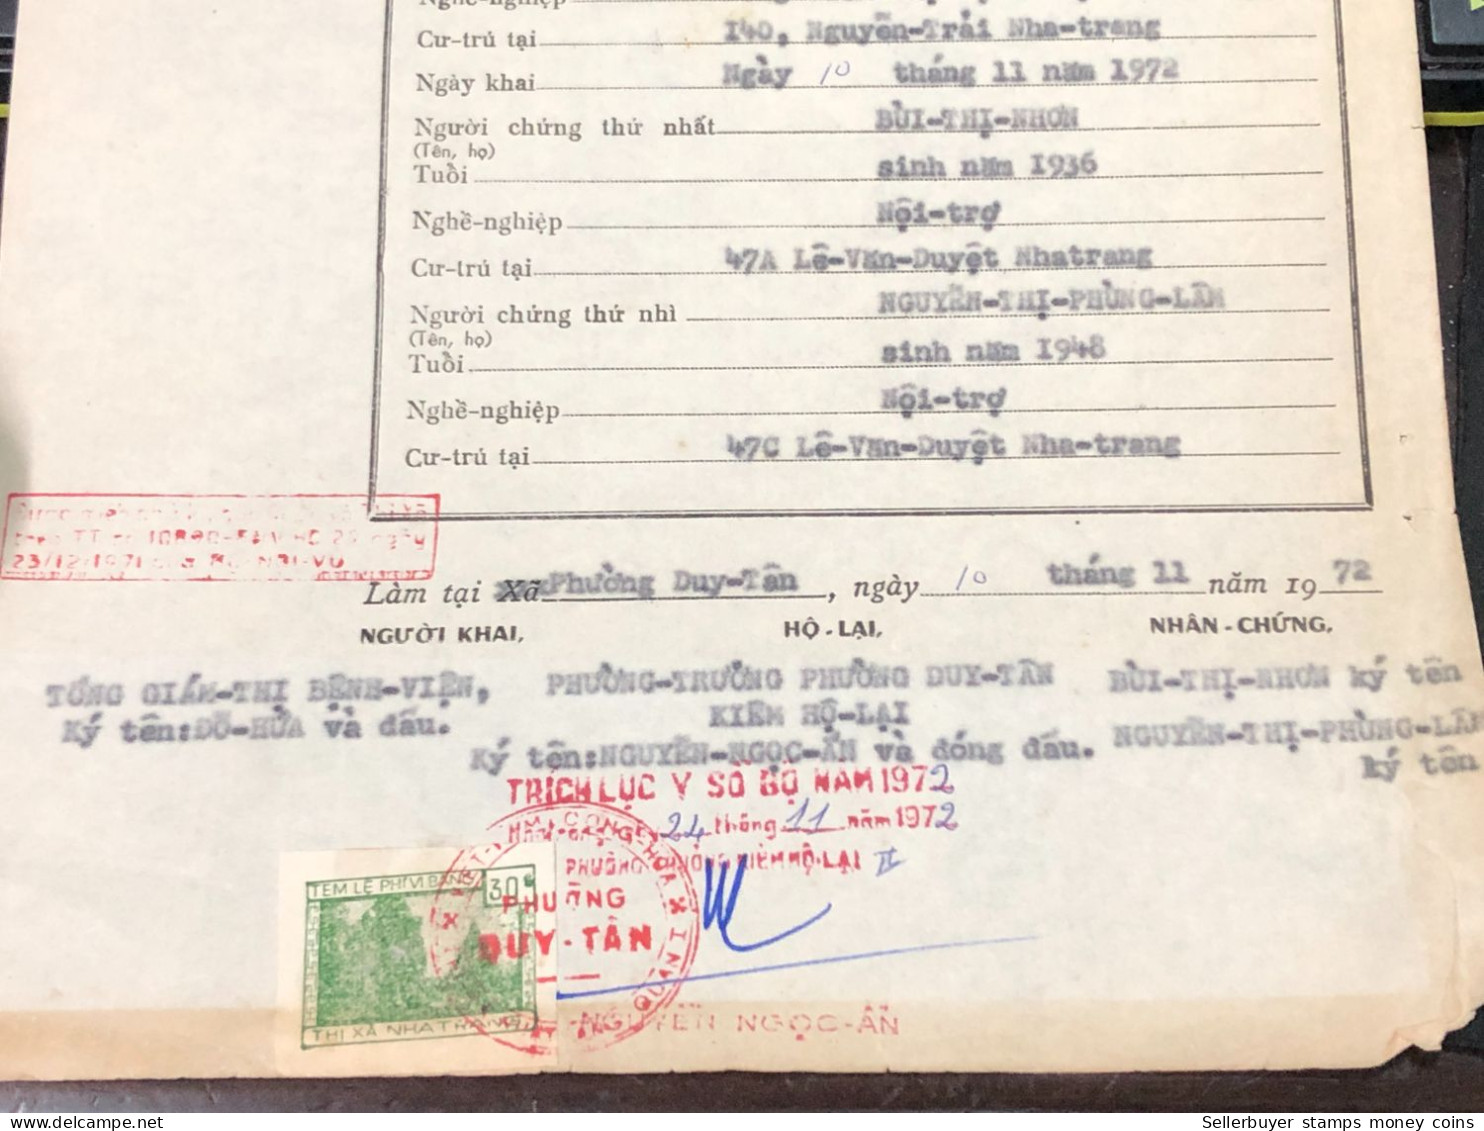 Nghề-nghiệp
Cư-trú tại 140, Nguyễn-Trải Nha-trang
Ngày khai Ngày 10 tháng 11 năm 1972
Người chứng thứ nhất BÙI-THỊ-NHƠN
(Tên, họ)
Tuổi sinh năm 1936
Nghề-nghiệp Nội-trợ
Cư-trú tại 47A Lê-Văn-Duyệt Nhatrang
Người chứng thứ nhì NGUYỄN-THỊ-PHÙNG-LÂM
(Tên, họ)
Tuổi sinh năm 1948
Nghề-nghiệp Nội-trợ
Cư-trú tại 47C Lê-Văn-Duyệt Nha-trang
23/12/1971 NỘI-VỤ
Làm tại Xã Phường Duy-Tân, ngày 10 tháng 11 năm 1972
NGƯỜI KHAI, HỘ-LẠI, NHÂN-CHỨNG,
TỔNG GIÁM-THỊ BỆNH-VIỆN, PHƯỜNG-TRƯỞNG PHƯỜNG DUY-TÂN BÙI-THỊ-NHƠN ký tên
Ký tên:ĐỖ-HỨA và dấu. KIÊM HỘ-LẠI NGUYỄN-THỊ-PHÙNG-LÂM
Ký tên:NGUYỄN-NGỌC-ẨN và đóng dấu. ký tên
TRÍCH LỤC Y SỔ BỘ NĂM 1972
24 tháng 11 năm 1972
PHƯỜNG TRƯỞNG KIÊM HỘ LẠI
TEM LỆ PHÍ VI BẰNG 30đ
PHƯỜNG
DUY-TÂN
THỊ XÃ NHATRANG
NGUYỄN NGỌC-ẨN
Sellerbuyer stamps money coins